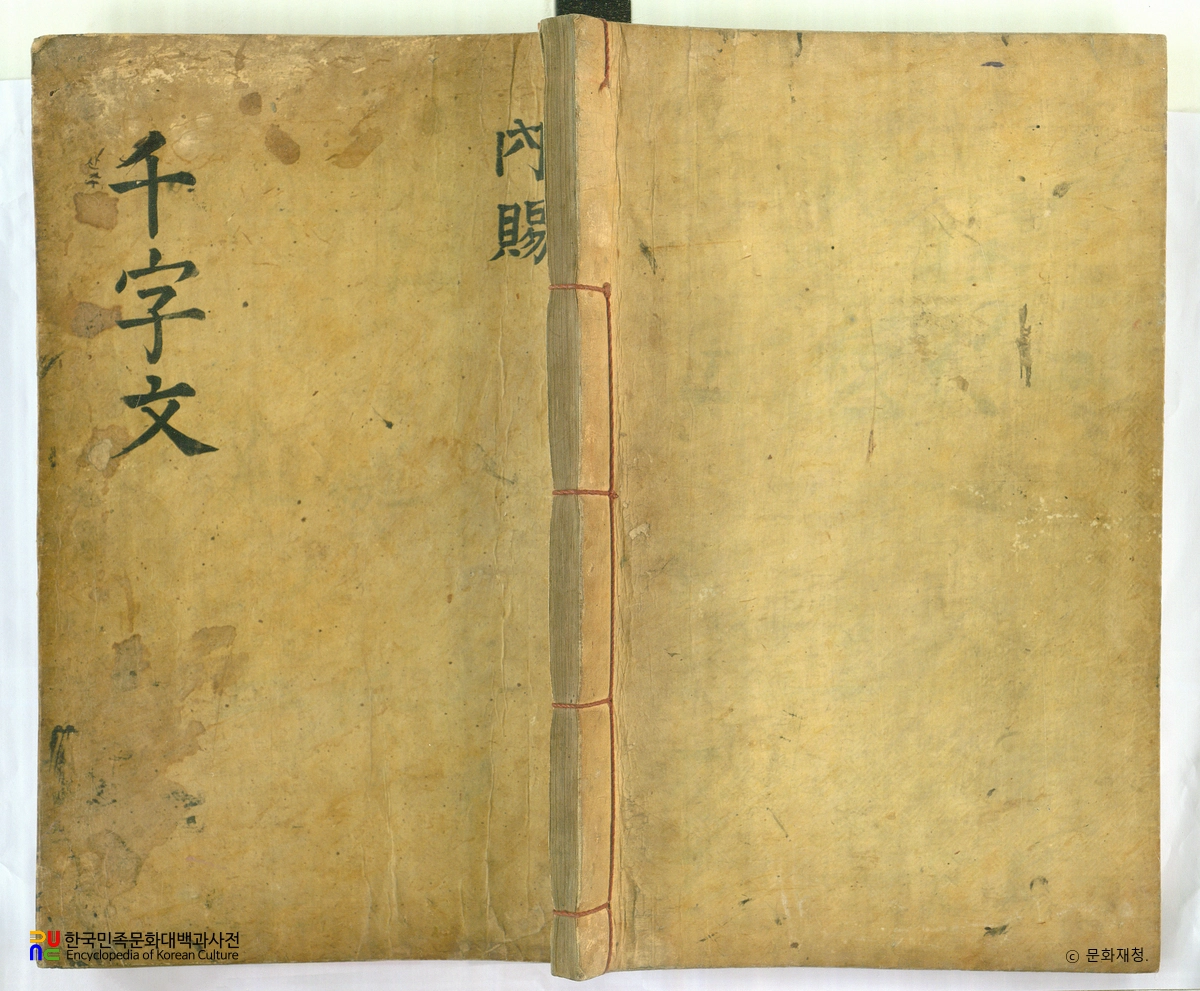 千字文
內賜
한국민족문화대백과사전
Encyclopedia of Korean Culture
ⓒ 문화재청.